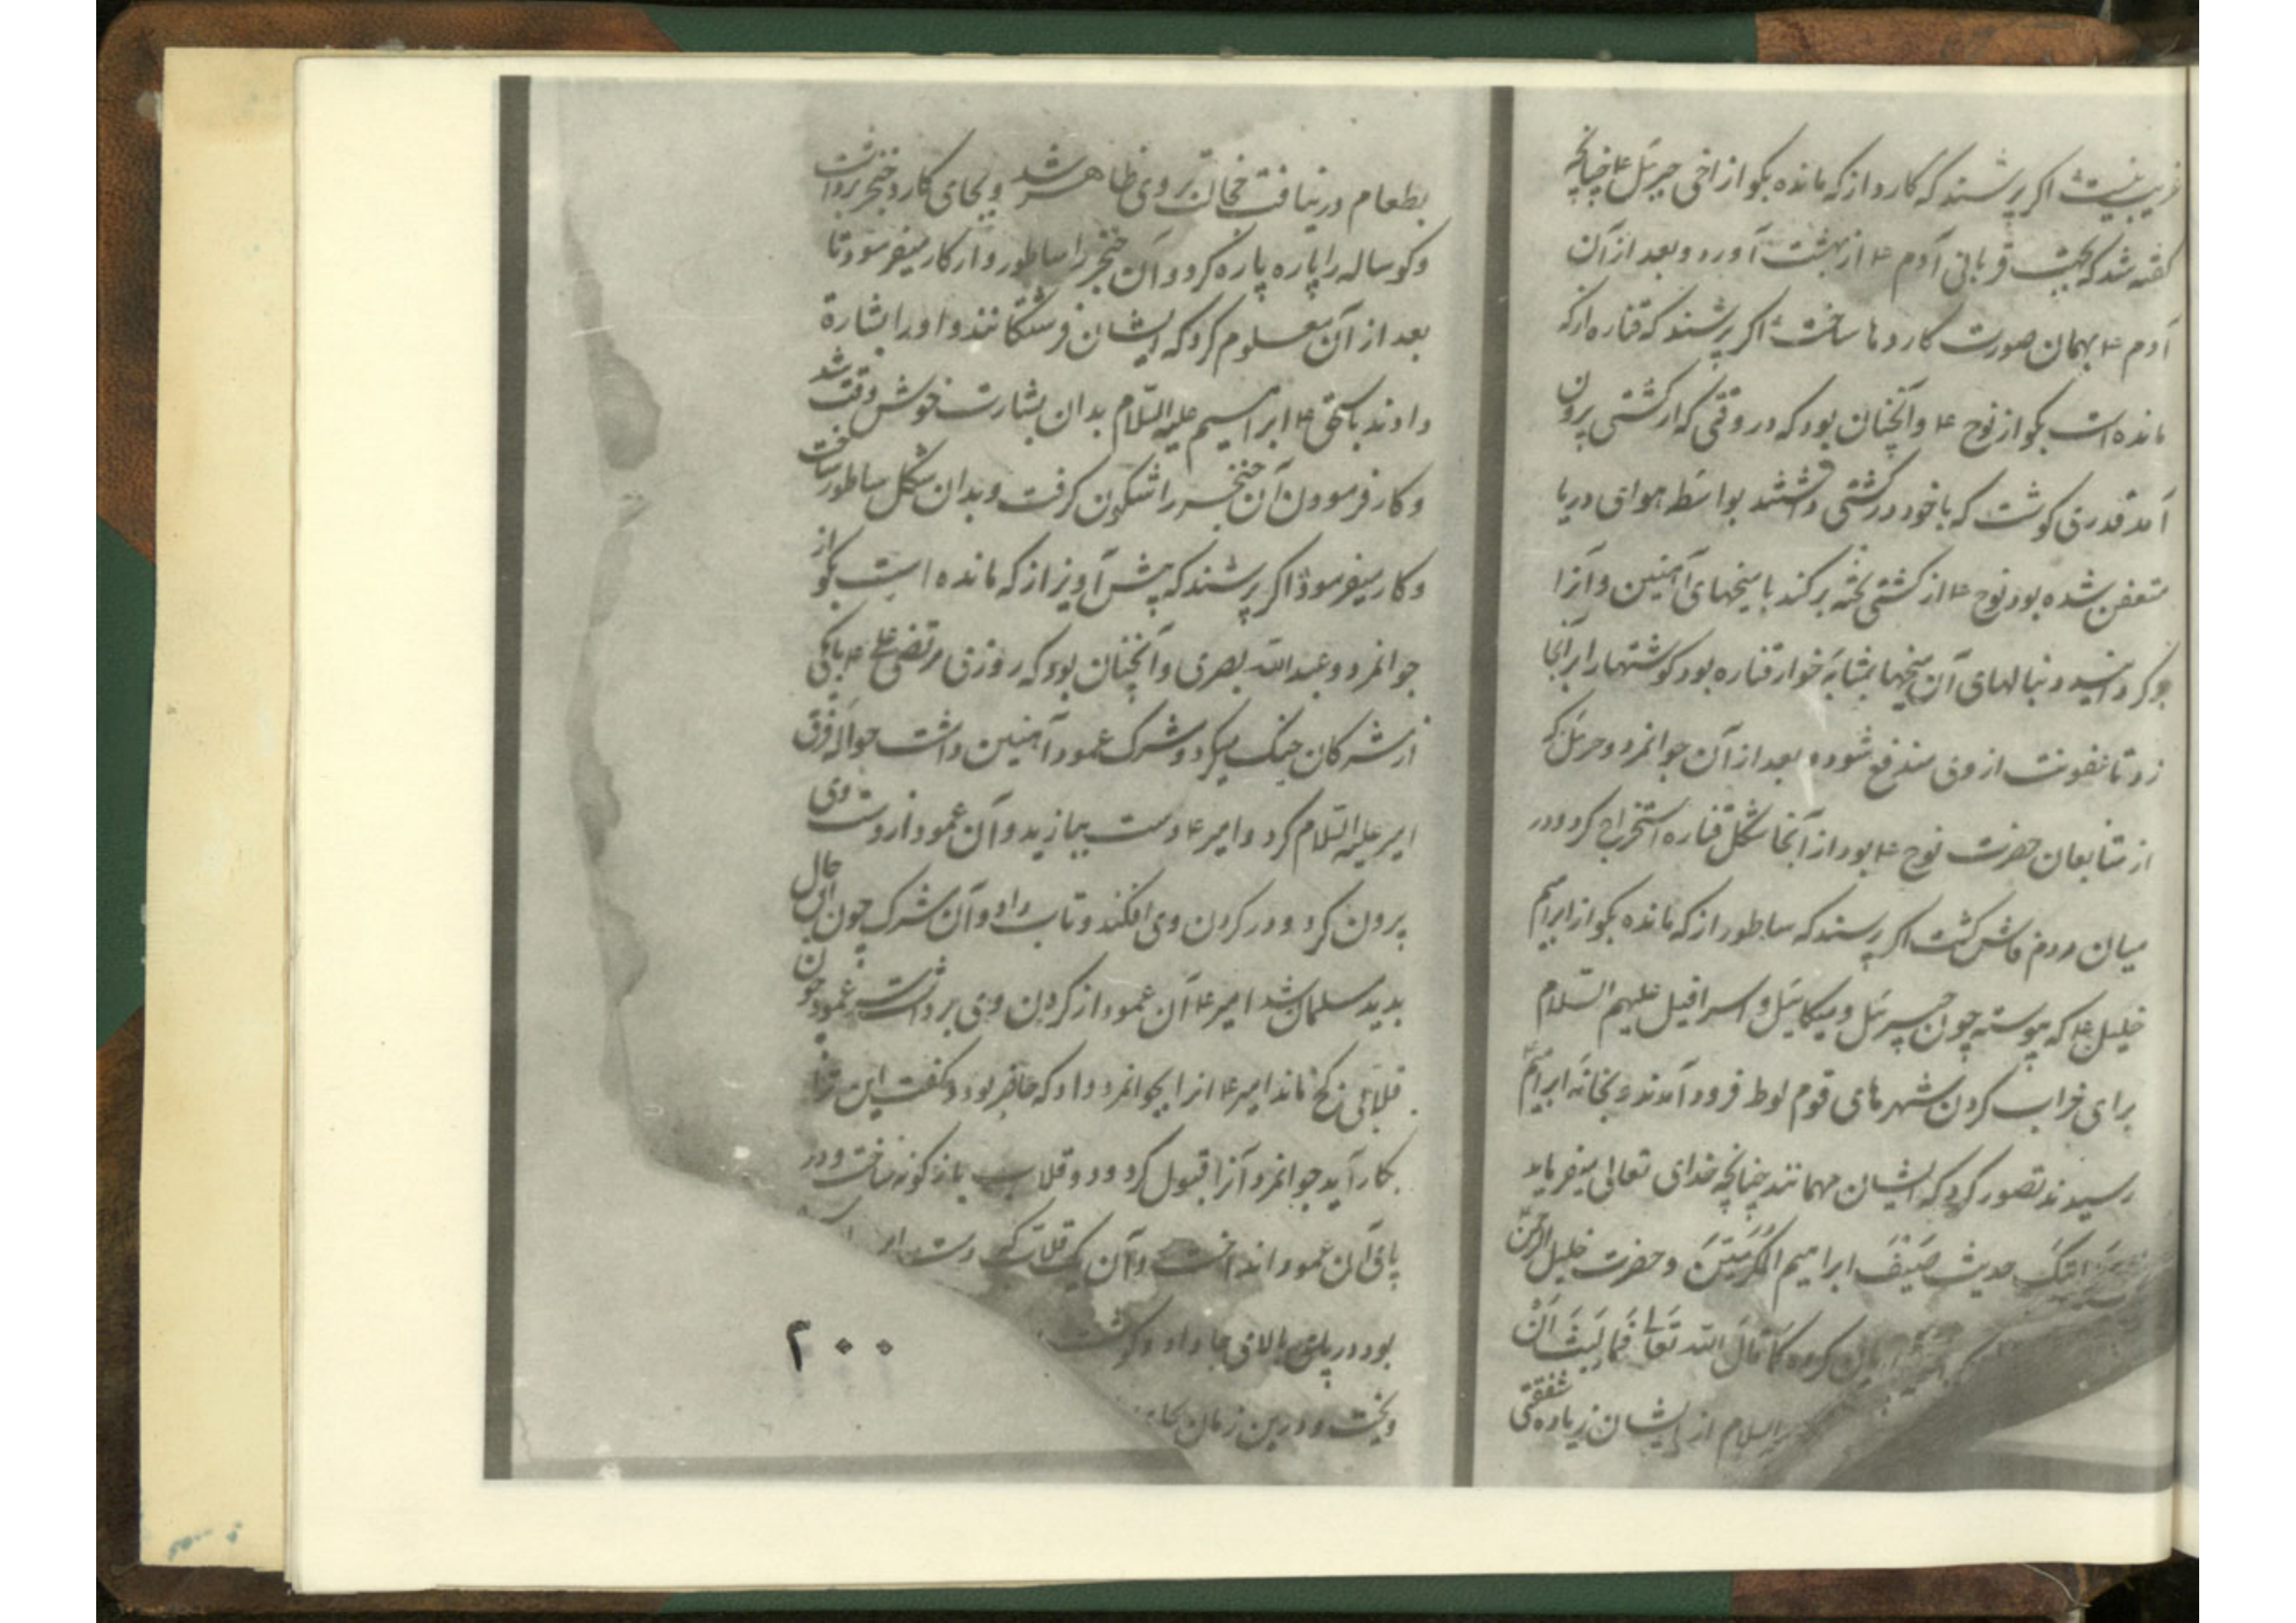 اگر پرسند که کارد از که مانده بگو از اخی جبرئیل ۴ چنانچه
گفته شد که بجهت قربانی آدم ۴ از بهشت آورد و بعد از آن
آدم ۴ بهمان صورت کاردها ساخت اگر پرسند که قناره از که
مانده است بگو از نوح ۴ و آنچنان بود که در وقتی که از کشتی برون
آمد قدری گوشت که با خود در کشتی داشتند بواسطه هوای دریا
متعفن شده بود نوح ۴ از کشتی تخته برکند با میخهای آهنین و آنرا
دنبالهای آن میخها بمثابه قناره بود گوشتها را بر آنجا
زد تا عفونت از وی مندفع شود و بعد از آن جوانمرد که
از متابعان حضرت نوح ۴ بود از آنجا شکل قناره استخراج کرد و در
میان مردم فاش گشت اگر پرسند که ساطور از که مانده بگو از ابراهیم
خلیل ۴ که پیوسته چون جبرئیل و میکائیل و اسرافیل علیهم السلام
برای خراب کردن شهرهای قوم لوط فرود آمدند و بخانه ابراهیم
رسیدند تصور کرد که ایشان مهمانند چنانچه خدای تعالی میفرماید
اتیک حدیث ضیف ابراهیم المکرمین و حضرت خلیل الرحمن
بریان کرده کما قال الله تعالی فما لبث ان
السلام از ایشان زیاده شفقتی
بطعام در نیافت خجالت بر وی ظاهر شد و بجای کارد خنجر برداشت
و کوساله را پاره پاره کرد و آن خنجر را ساطور وار کار میفرمود تا
بعد از آن معلوم کرد که ایشان فرشتگانند و او را بشارة
دادند باسحق ۴ ابراهیم علیه السلام بدان بشارت خوش وقت شد
و کار فرمودن آن خنجر را شگون گرفت و بدان شکل ساطور ساخت
و کار میفرمود اگر پرسند که پیش آویز از که مانده است بگو از
جوانمرد و عبد الله بصری و آنچنان بود که روزی مرتضی علی ۴ با یکی
از مشرکان جنگ میکرد و مشرک عمود آهنین داشت حواله فرق
امیر علیه السلام کرد و امیر ۴ دست بیازید و آن عمود از دست وی
برون کرد و در گردن وی افکند و تاب داد و آن مشرک چون آن حال
بدید مسلمان شد امیر ۴ آن عمود از گردن وی برداشت عمود چون
قلابی کج ماند امیر ۴ انرا بجوانمرد داد که حاضر بود و گفت این ترا
بکار آید جوانمرد آنرا قبول کرد و دو قلاب بازگونه ساخت و در
پای آن عمود انداخت و آن یک قلاب که دست
بود در پای بالای جا داد و گوشت
ویخت و درین زمان بجای
۲۰۰